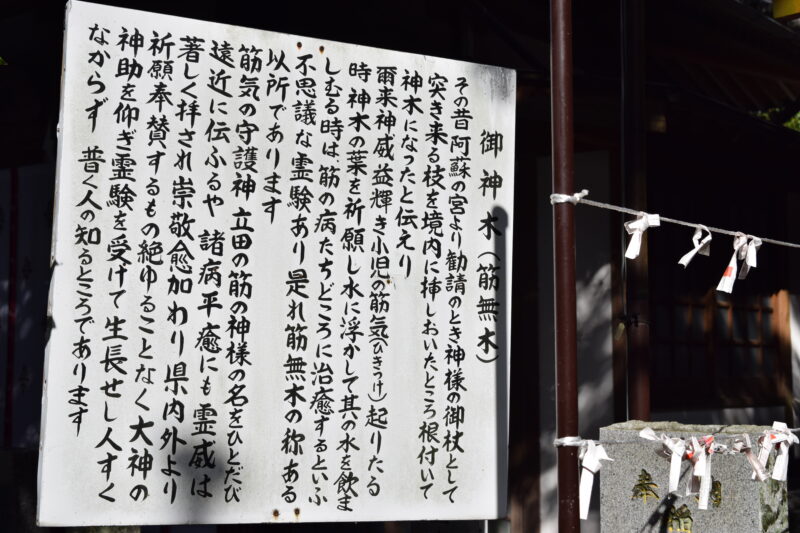 御神木(筋無木)
その昔阿蘇の宮より勧請のとき神様の御杖として
突き来る枝を境内に挿しおいたところ根付いて
神木になったと伝えり
爾来神威益輝き小児の筋気(ひきつけ)起りたる
時神木の葉を祈願し水に浮かして其の水を飲ま
しむる時は、筋の病たちどころに治癒するといふ
不思議な霊験あり是れ筋無木の称ある
以所であります
筋気の守護神立田の筋の神様の名をひとたび
遠近に伝ふるや 諸病平癒にも霊威は
著しく拝され崇敬愈加わり県内外より
祈願奉賛するもの絶ゆることなく大神の
神助を仰ぎ霊験を受けて生長せし人すく
なからず 普く人の知るところであります
奉